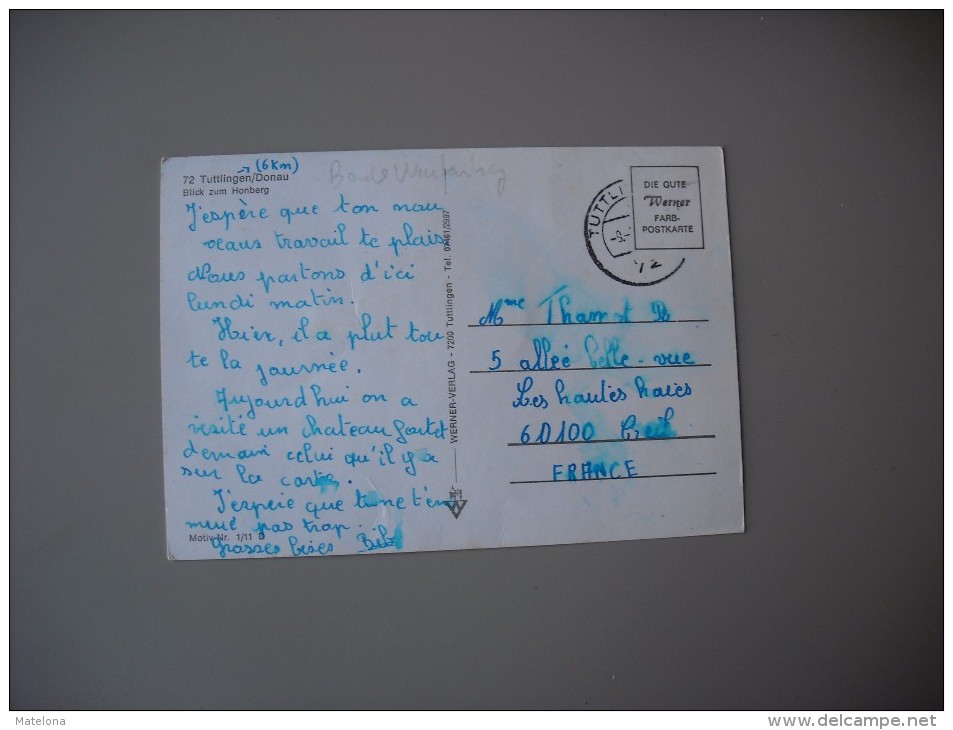 (6 Km)
72 Tuttlingen/Donau
Blick zum Honberg
J'espère que ton nou
veaus travail te plais
Nous partons d'ici
lundi matin.
Hier, il a plut tou
te la journée.
Aujourd'hui on a
visité un chateau fort et
demain celui qu'il y a
sur la carte.
J'espère que tu ne t'en
nuie pas trop.
Motiv-Nr. 1/11 D
Grosses bises
WERNER-VERLAG - 7200 Tuttlingen - Tel. 07461/2997
TUTTLI
72
DIE GUTE
Werner
FARB-
POSTKARTE
Mme
5 allée belle-vue
Les hautes haies
60100 Creil
FRANCE
Matelona
www.delcampe.net